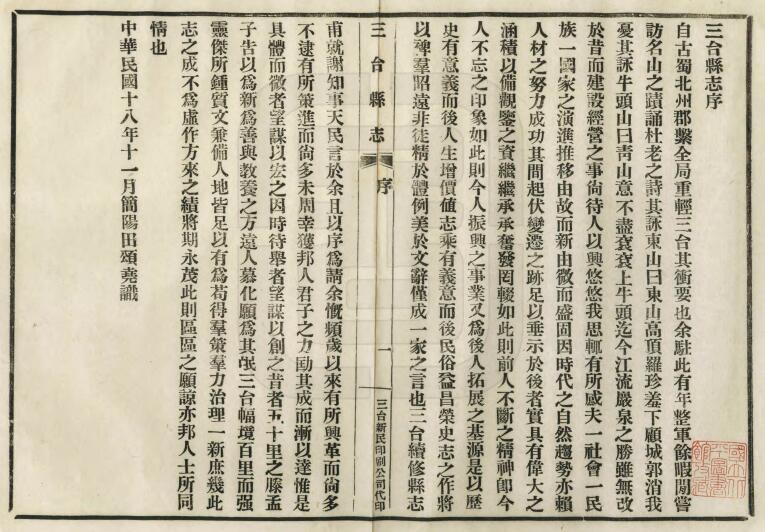 三台縣志序
自古蜀北州郡繫全局重輕三台其衝要也余駐此有年整軍餘暇閒嘗
訪名山之蹟誦杜老之詩其詠東山曰東山高頂羅珍羞下顧城郭消我
憂其詠牛頭山曰靑山意不盡袞袞上牛頭迄今江流嚴泉之勝雖無改
於昔而建設經營之事尙待人以興悠悠我思輒有所感夫一社會一民
族一國家之演進推移由故而新由微而盛固因時代之自然趨勢亦賴
人材之努力成功其間起伏變遷之跡足以垂示於後者實具有偉大之
涵積以備觀鑒之資繼繼承承奮發罔輟如此則前人不斷之精神卽今
人不忘之印象如此則今人振興之事業又爲後人拓展之基源是以歷
史有意義而後人生增價値志乘有義意而後民俗益昌榮史志之作將
以裨羣昭遠非徒精於體例美於文辭僅成一家之言也三台續修縣志
三台縣志 序 一 三台新民印刷公司代印
甫就謝知事天民言於余且以序爲請余慨頻歲以來有所興革而尙多
不逮有所策進而尙多未周幸獲邦人君子之力勖其成而漸以達惟是
具體而微者望謀以宏之因時待舉者望謀以創之昔者五十里之滕孟
子告以爲新爲善與敎養之方遠人慕化願爲其氓三台幅墳百里而强
靈傑所鍾質文兼備人地皆足以有爲苟得羣策羣力治理一新庶幾此
志之成不爲虛作方來之績將期永茂此則區區之願諒亦邦人士所同
情也
中華民國十八年十一月簡陽田頌堯識